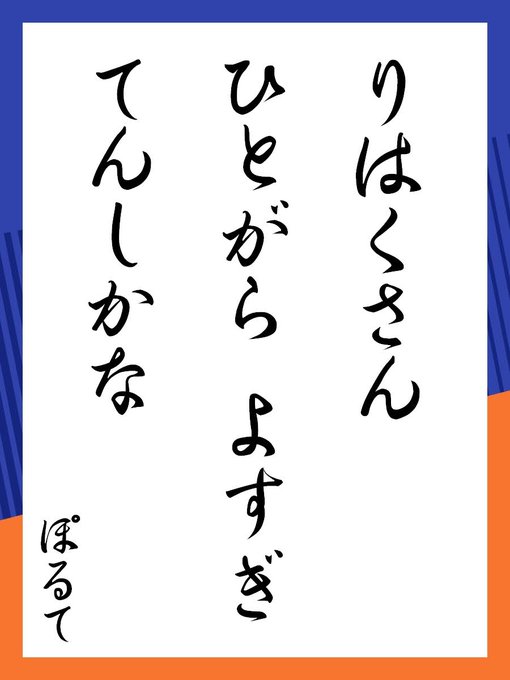 りはくさん
ひとがら よすぎ
てんしかな
ぽるて